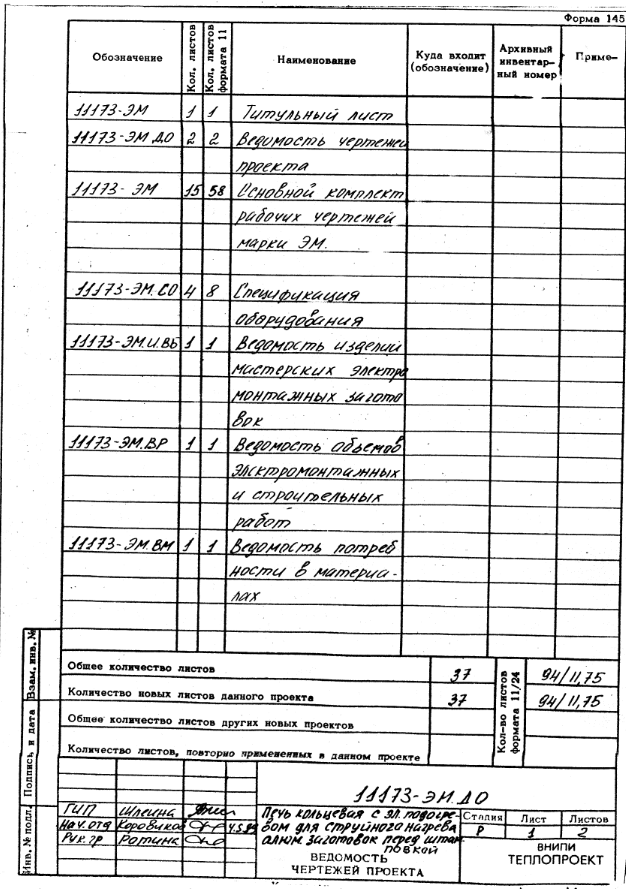 Форма 145
Обозначение Кол. листов Кол. листов формата 11 Наименование Куда входит (обозначение) Архивный инвентар- ный номер Приме-
11173-ЭМ 1 1 Титульный лист
11173-ЭМ.ДО 2 2 Ведомость чертежей
проекта
11173-ЭМ 15 58 Основной комплект
рабочих чертежей
марки ЭМ.
11173-ЭМ.СО 4 8 Спецификация
оборудования
11173-ЭМ.И.ВЬ 1 1 Ведомость изделий
мастерских электро
монтажных загото
вок
11173-ЭМ.ВР 1 1 Ведомость объемов
электромонтажных
и строительных
работ
11173-ЭМ.ВМ 1 1 Ведомость потреб
ности в материа-
лах
Общее количество листов 37 Кол-во листов формата 11/24 94/11,75
Количество новых листов данного проекта 37 94/11,75
Общее количество листов других новых проектов
Количество листов, повторно примененных в данном проекте
Взам. инв. №
Подпись и дата
Инв. № подл.
11173-ЭМ.ДО
ГИП Шлеина
Нач.отд Коровиков
Рук.гр Ротина
Печь кольцевая с эл. подогре-
вом для струйного нагрева
алюм. заготовок перед штам
повкой
Стадия Лист Листов
Р 1 2
ВЕДОМОСТЬ
ЧЕРТЕЖЕЙ ПРОЕКТА
ВНИПИ
ТЕПЛОПРОЕКТ